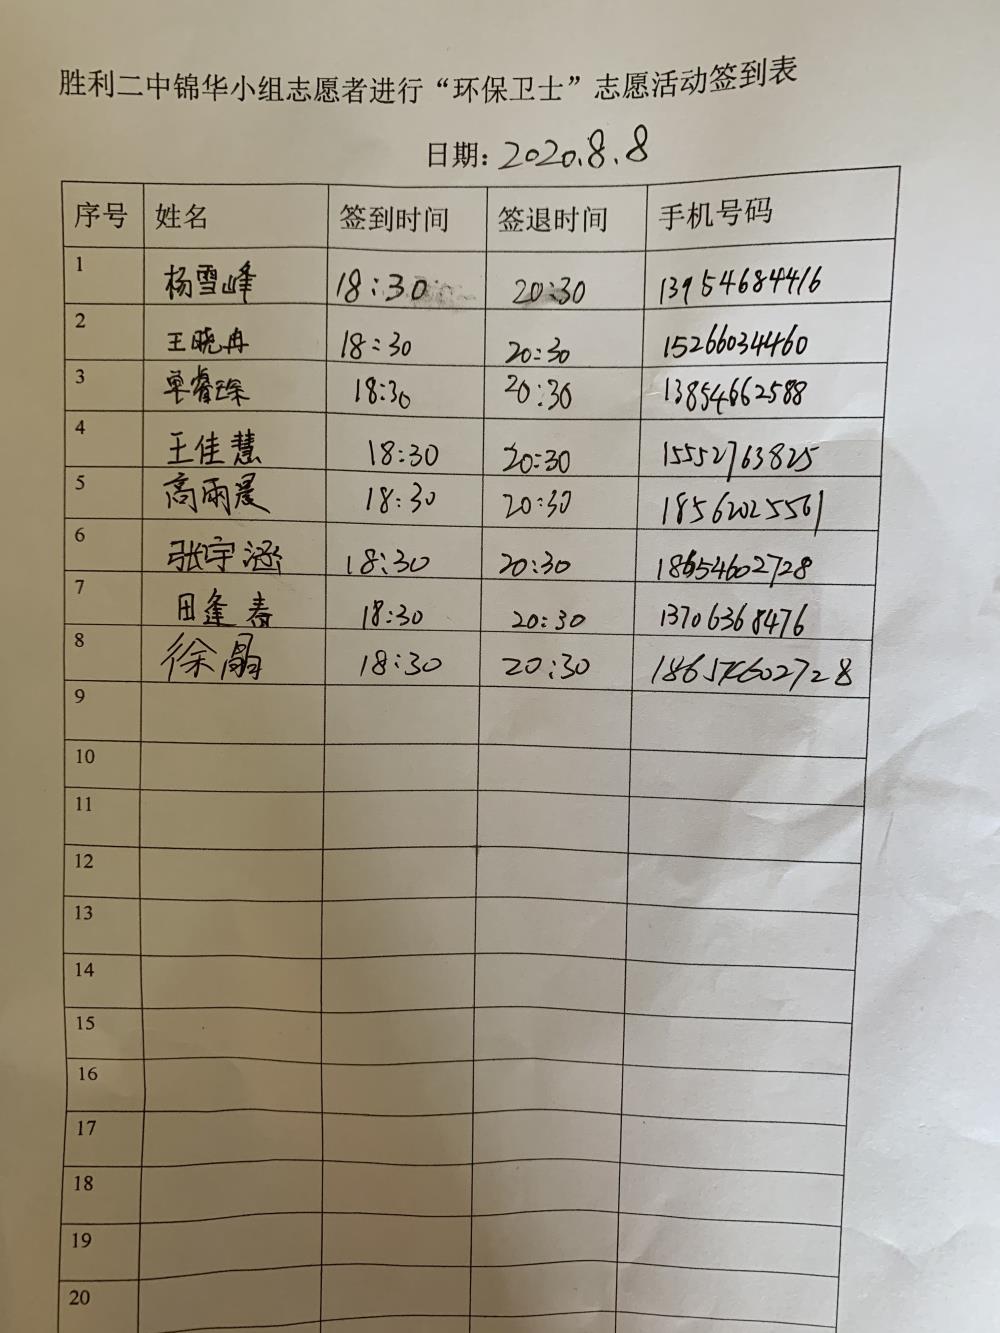 胜利二中锦华小组志愿者进行“环保卫士”志愿活动签到表
日期: 2020.8.8
序号 姓名 签到时间 签退时间 手机号码
1 杨雪峰 18:30 20:30 13954684416
2 王晓冉 18:30 20:30 15266034460
3 单睿琛 18:30 20:30 13854662588
4 王佳慧 18:30 20:30 15552763825
5 高雨晨 18:30 20:30 18562025561
6 张宇涵 18:30 20:30 18654602728
7 田逢春 18:30 20:30 13706368476
8 徐晶 18:30 20:30 18654602728
9
10
11
12
13
14
15
16
17
18
19
20